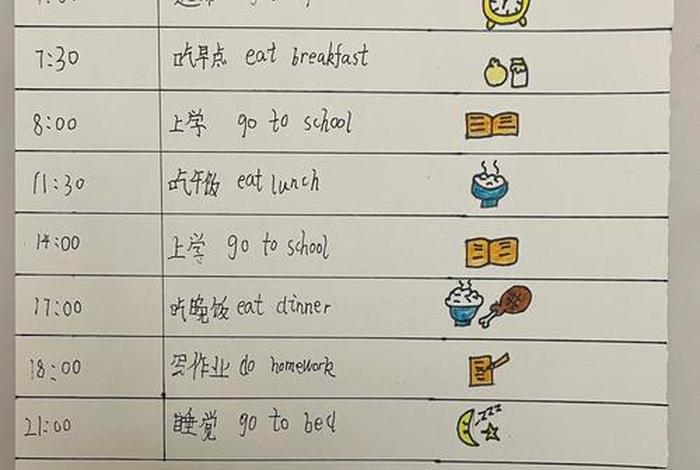 7:30 吃早点 eat breakfast
8:00 上学 go to school
11:30 吃午饭 eat lunch
14:00 上学 go to school
17:00 吃晚饭 eat dinner
18:00 写作业 do homework
21:00 睡觉 go to bed
zzz